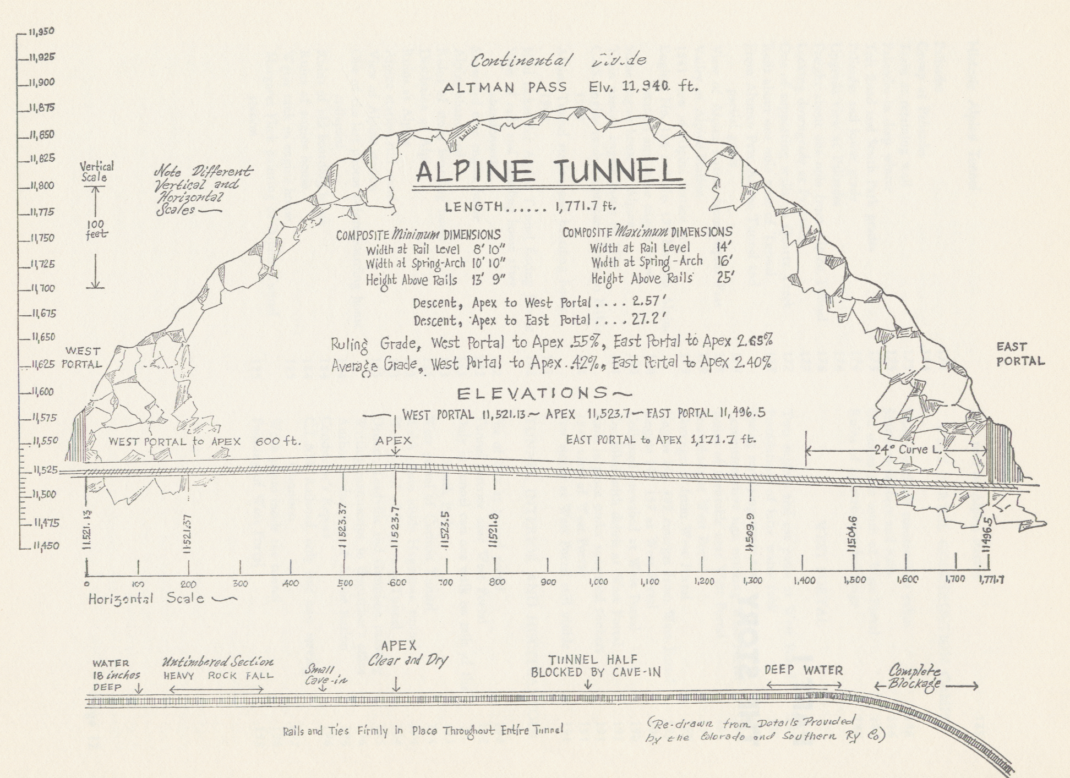 11,950
11,925
11,900
11,875
11,850
11,825
11,800
11,775
11,750
11,725
11,700
11,675
11,650
11,625
11,600
11,575
11,550
11,525
11,500
11,475
11,450
Continental Divide
ALTMAN PASS Elv. 11,940 ft.
Vertical
Scale
100
feet
Note Different
Vertical and
Horizontal
Scales
ALPINE TUNNEL
LENGTH...... 1,771.7 ft.
COMPOSITE Minimum DIMENSIONS
Width at Rail Level 8' 10"
Width at Spring-Arch 10' 10"
Height Above Rails 13' 9"
COMPOSITE Maximum DIMENSIONS
Width at Rail Level 14'
Width at Spring-Arch 16'
Height Above Rails 25'
Descent, Apex to West Portal .... 2.57'
Descent, Apex to East Portal .... 27.2'
Ruling Grade, West Portal to Apex .55%, East Portal to Apex 2.65%
Average Grade, West Portal to Apex .42%, East Portal to Apex 2.40%
WEST
PORTAL
EAST
PORTAL
ELEVATIONS~
WEST PORTAL 11,521.13~ APEX 11,523.7~EAST PORTAL 11,496.5
WEST PORTAL to APEX 600 ft.
APEX
EAST PORTAL to APEX 1,171.7 ft.
24° Curve L.
11521.13
11521.37
11523.37
11523.7
11523.5
11521.8
11509.9
11504.6
11496.5
0 100 200 300 400 500 600 700 800 900 1,000 1,100 1,200 1,300 1,400 1,500 1,600 1,700 1,771.7
Horizontal Scale
WATER
18 inches
DEEP
Untimbered Section
HEAVY ROCK FALL
Small
Cave-in
APEX
Clear and Dry
TUNNEL HALF
BLOCKED BY CAVE-IN
DEEP WATER
Complete
Blockage
Rails and Ties Firmly In Place Throughout Entire Tunnel
(Re-drawn from Details Provided
by the Colorado and Southern Ry Co)